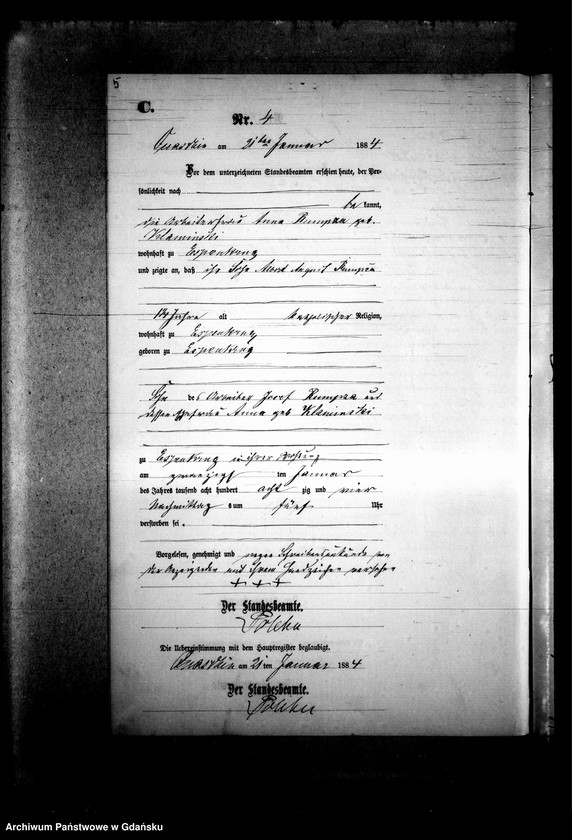 5
C.
Nr. 4
am 21ten Januar 1884
Vor dem unterzeichneten Standesbeamten erschien heute, der Per-
sönlichkeit nach
be kannt,
die Arbeiterfrau Anna Rumpza geb.
Klaminski
wohnhaft zu Espenkrug
und zeigte an, daß ihr Sohn Albert August Rumpza
Jahre alt katholischer Religion,
wohnhaft zu Espenkrug
geboren zu Espenkrug
Sohn des Arbeiter Josef Rumpza und
dessen Ehefrau Anna geb Klaminski
zu Espenkrug in ihrer Wohnung
am zwanzigsten Januar
des Jahres tausend acht hundert acht zig und vier
Nachmittag s um fünf Uhr
verstorben sei.
Vorgelesen, genehmigt und wegen Schreibensunkunde von
der Anzeigenden mit ihrem Handzeichen versehen
+ + +
Der Standesbeamte.
Die Uebereinstimmung mit dem Hauptregister beglaubigt.
am 21 ten Januar 1884
Der Standesbeamte.
Archiwum Państwowe w Gdańsku